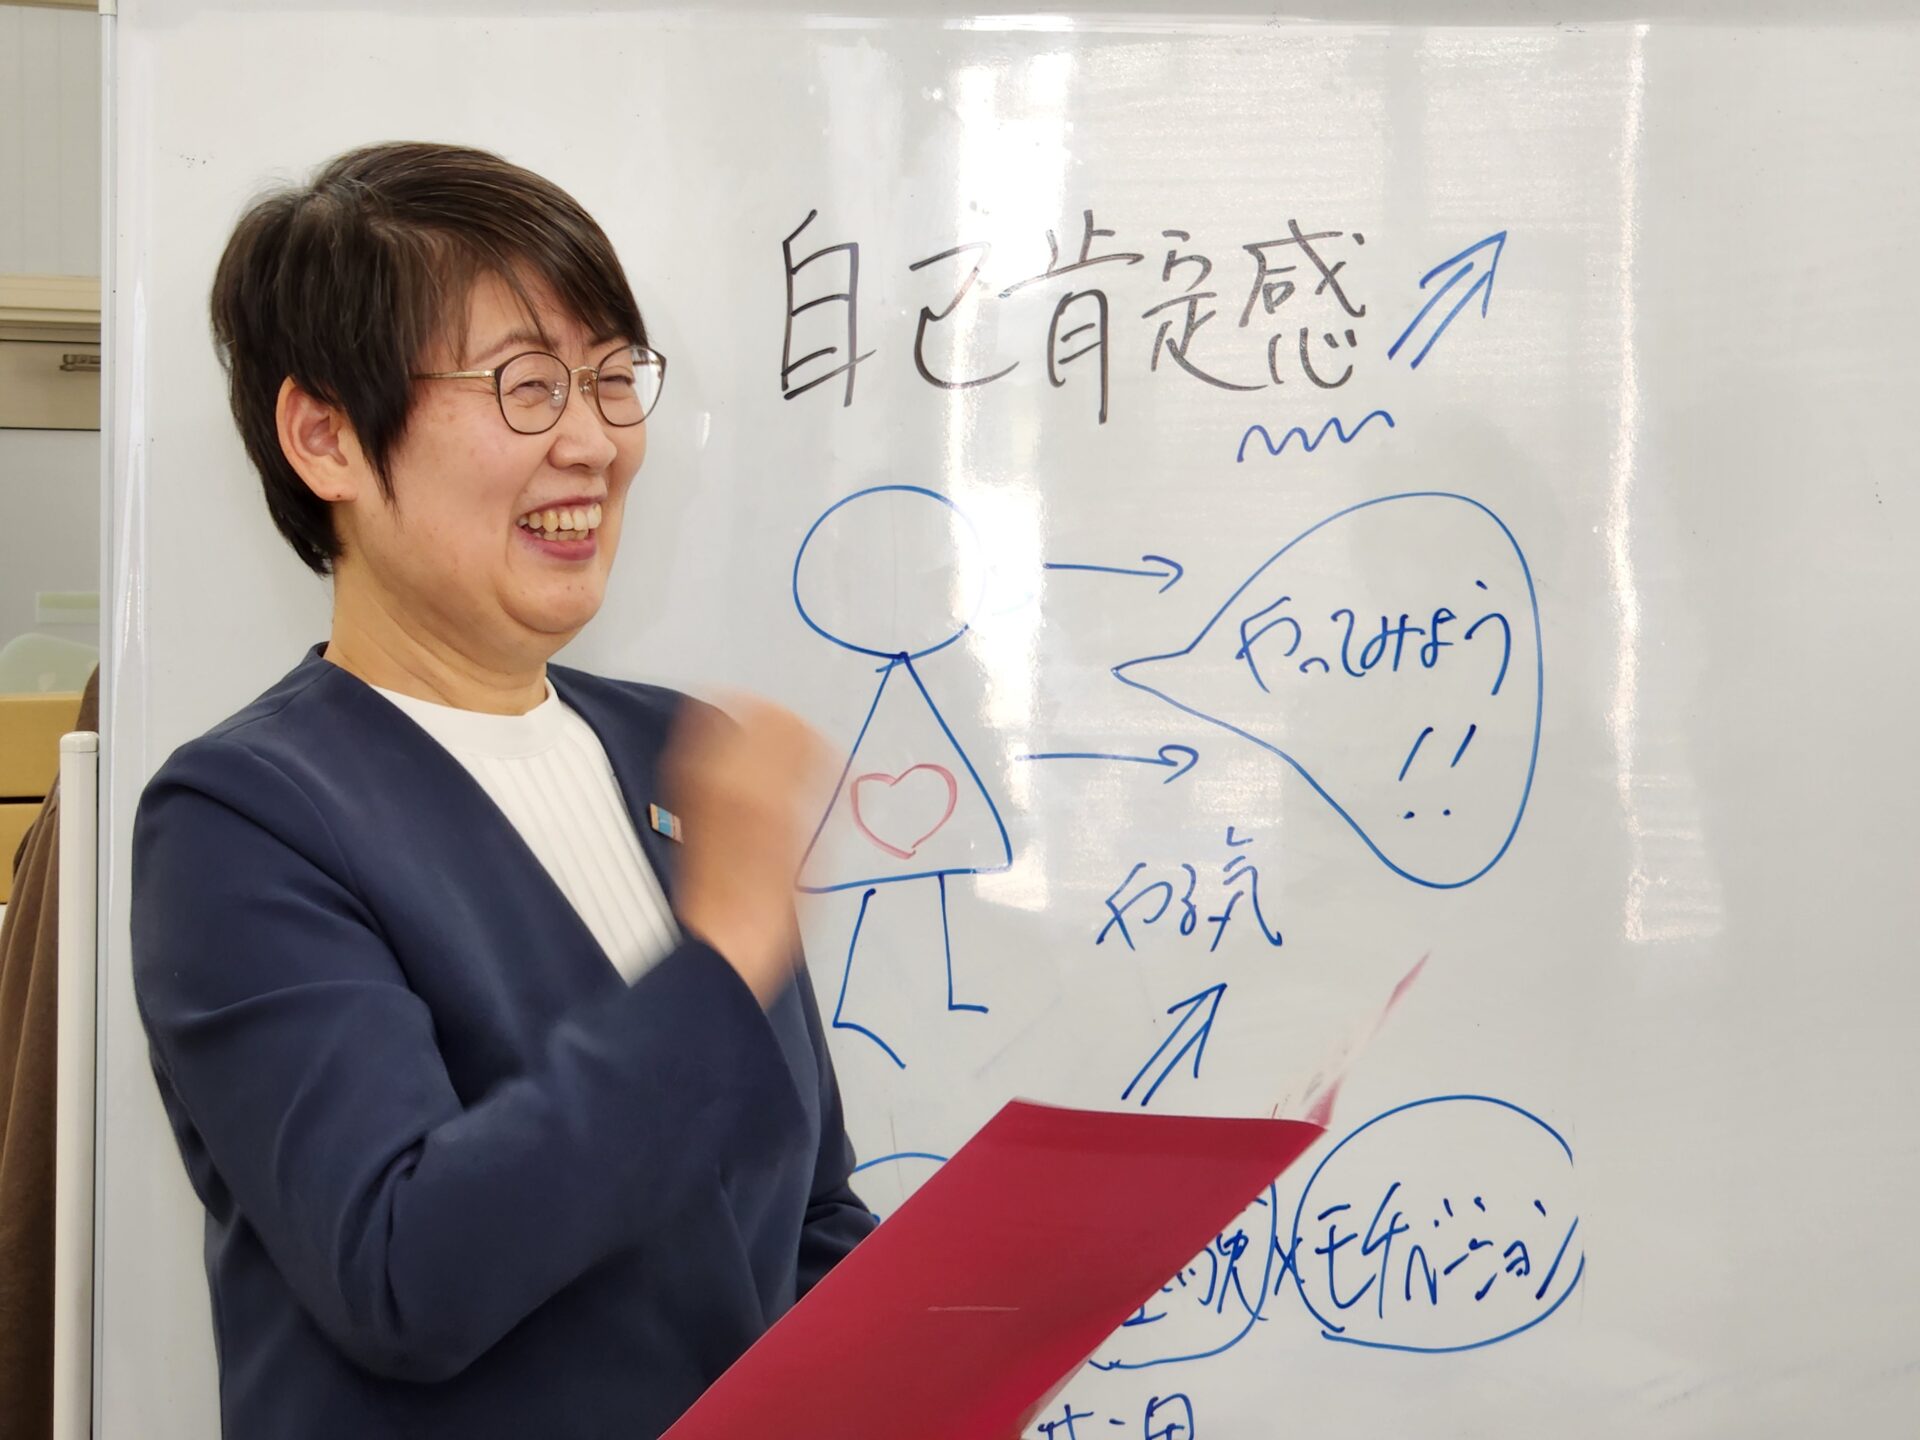 自己肯定感
やってみよう
!!
やる気
モチベーション